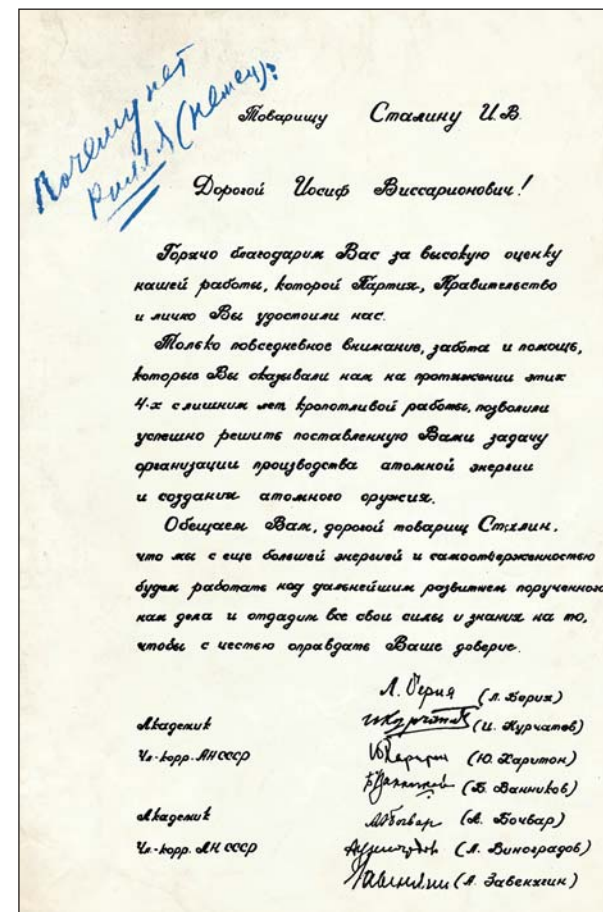 Почему нет
Рилля (немец)?
Товарищу Сталину И.В.
Дорогой Иосиф Виссарионович!
Горячо благодарим Вас за высокую оценку
нашей работы, которой Партия, Правительство
и лично Вы удостоили нас.
Только повседневное внимание, забота и помощь,
которые Вы оказывали нам на протяжении этих
4-х с лишним лет кропотливой работы, позволили
успешно решить поставленную Вами задачу
организации производства атомной энергии
и создания атомного оружия.
Обещаем Вам, дорогой товарищ Сталин,
что мы с еще большей энергией и самоотверженностью
будем работать над дальнейшим развитием порученного
нам дела и отдадим все свои силы и знания на то,
чтобы с честью оправдать Ваше доверие.
Л. Берия (Л. Берия)
Академик Курчатов (И. Курчатов)
Чл.-корр. АН СССР Ю Харитон (Ю. Харитон)
Б Ванников (Б. Ванников)
Академик А Бочвар (А. Бочвар)
Чл.-корр. АН СССР А Виноградов (А. Виноградов)
Завенягин (А. Завенягин)